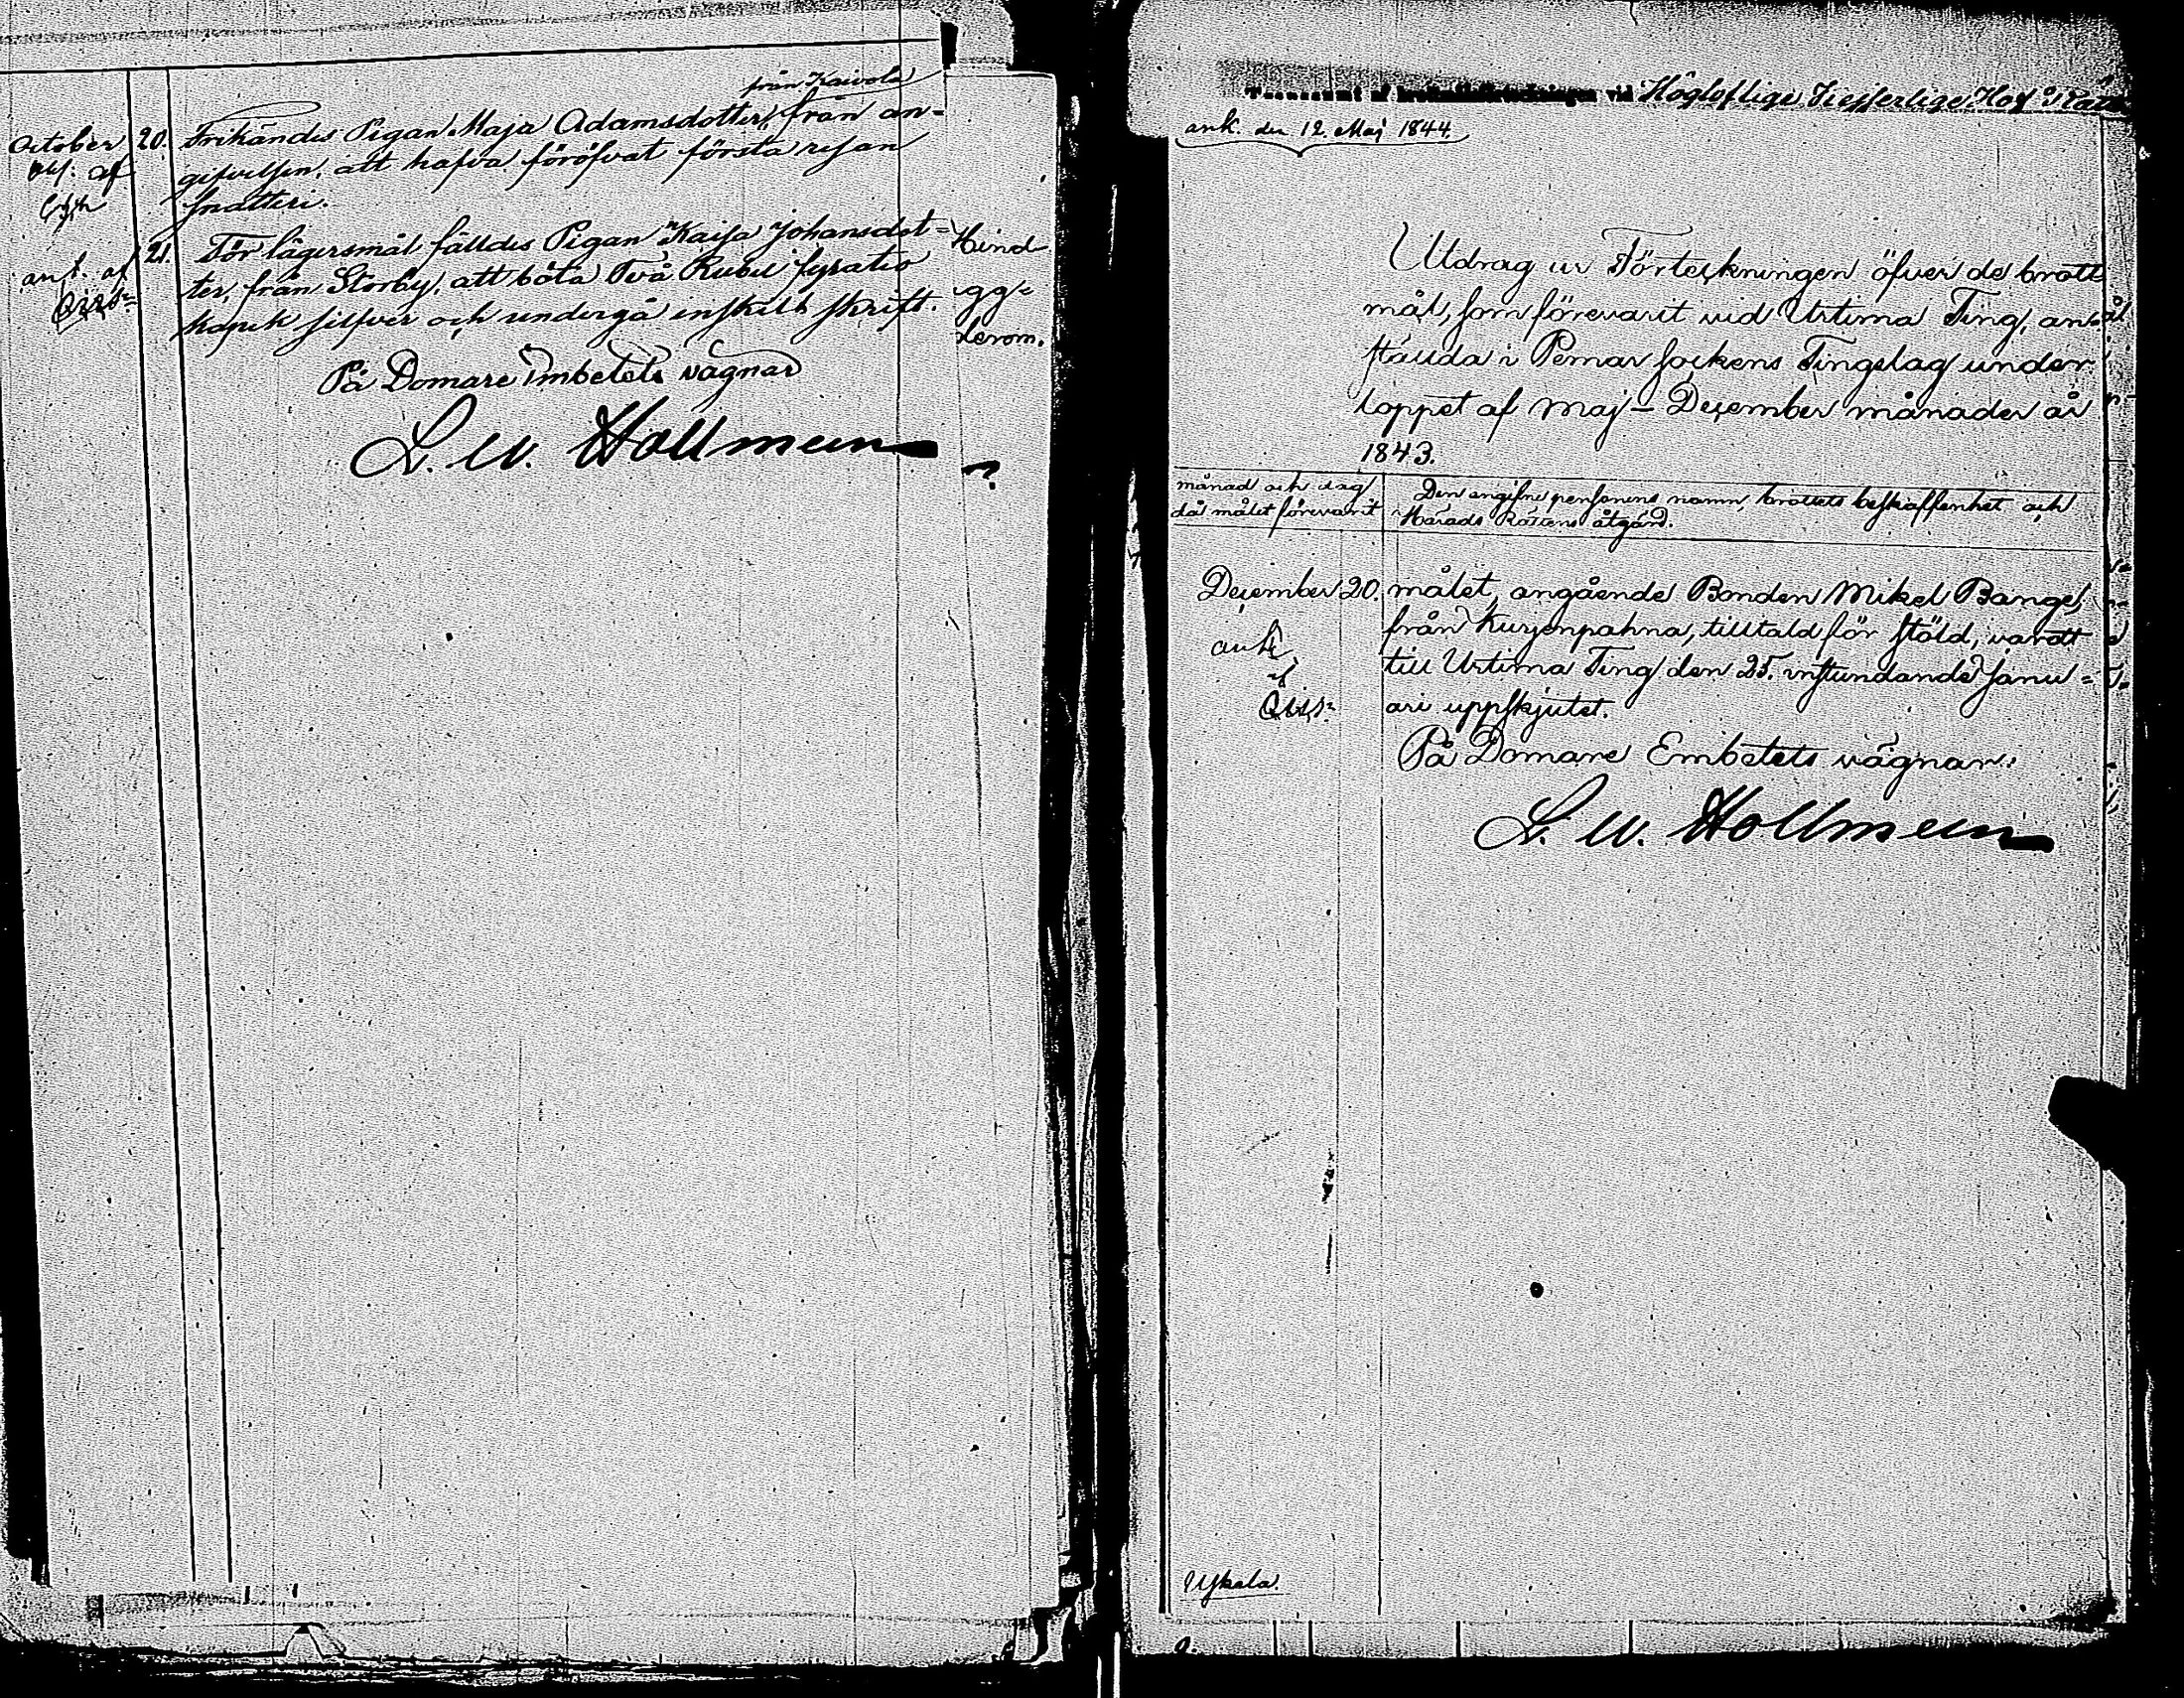 från Kaivola
October 20. Frikändes Pigan Maja Adamsdotter, från an-
af gifvelsen, att hafva föröfvat första resan
snatteri.
21. För lägersmål fälldes Pigan Kaisa Johansdot=
ant. af ter, från Storby, att böta Två Rubel fyratio
kopek silfver och undergå enskilt skrift.
På Domare Embetets vägnar
L. W. Hollmeun
Hind
gg=
derom.
vid Högloflige Kejserlige Hof Rätt
ank. den 12. Maj 1844.
Utdrag ur Förteckningen öfver de brott
mål, som förevarit vid Urtima Ting, an=
stälda i Pemar Sockens Tingslag under
loppet af Maj – December månader år
1843.
månad och dag
då målet förevarit
Den angifne personens namn, brottets beskaffenhet och
Härads Rättens åtgärd.
December 20. målet, angående Bonden Mikel Bange,
från Kurjenpahna, tilltald för stöld, vardt
af till Urtima Ting den 25. instundande Janu=
ari uppskjutet.
På Domare Embetets vägnar:
L. W. Hollmeun